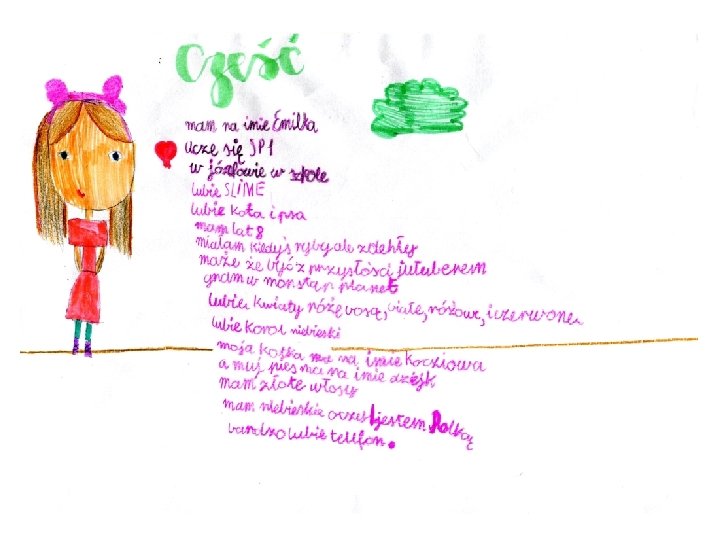 Cześć
mam na imie Emilka
Uczę się SP1
w józefowie w szkole
lubie SLIME
lubie kota i psa
mam lat 8
mialam kiedyś ryby ale zdehły
maże że byjć z przyszłości jutuberem
gram w monstap planet
lubie kwiaty różę bosą, białe, różowe, i czerwone
lubie koror niebieski
moja kotka ma na imie koczjowa
a muj pies ma na imie dżejk
mam złote włosy
mam niebieskie oczy jestem Polką
bardzo lubie telefon.